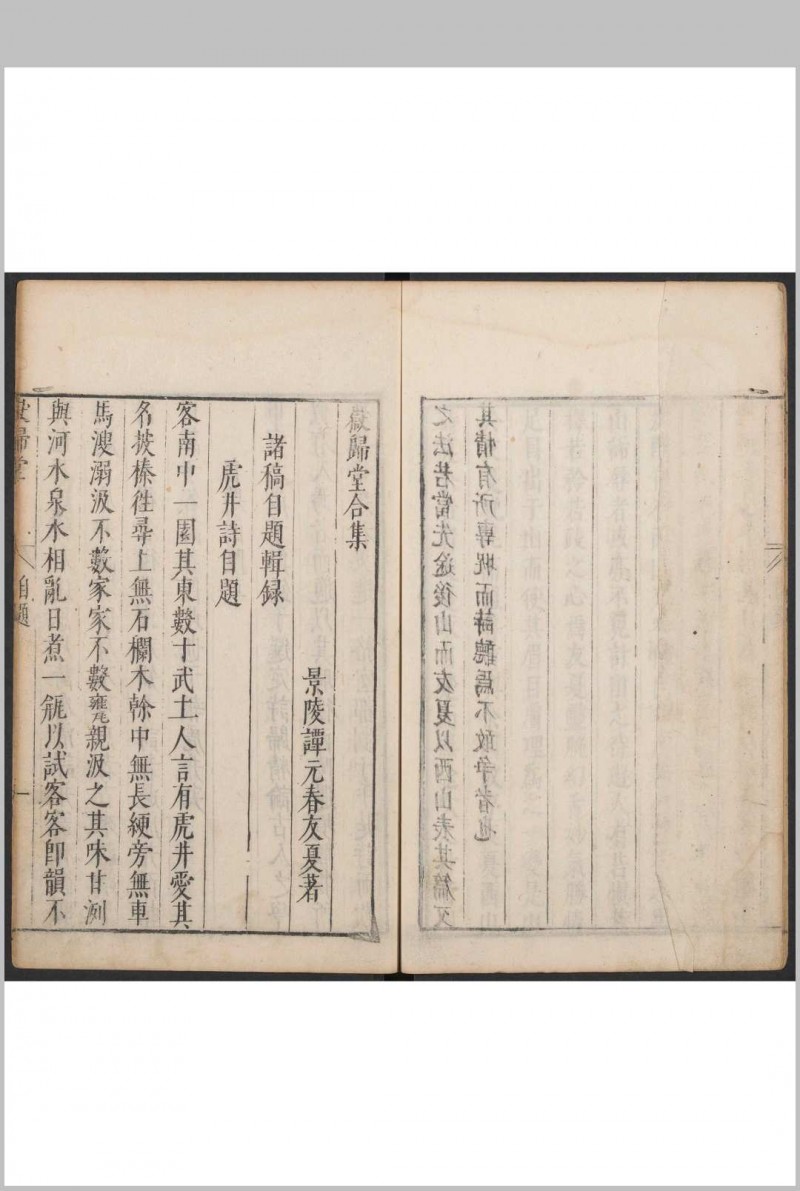 之法若當先途後山而友夏以西山表其篇又
其情有所專昵而詩聽焉不敢爭者也
嶽歸堂合集
景陵譚元春友夏著
諸稿自題輯録
虎井詩自題
客南中一園其東數十武土人言有虎井愛其
名披榛徃尋上無石欄木榦中無長綆旁無車
馬溲溺汲不數家家不數甕親汲之其味甘洌
與河水泉水相亂日煮一缾以試客客卽韻不
嶽歸堂 自題 一